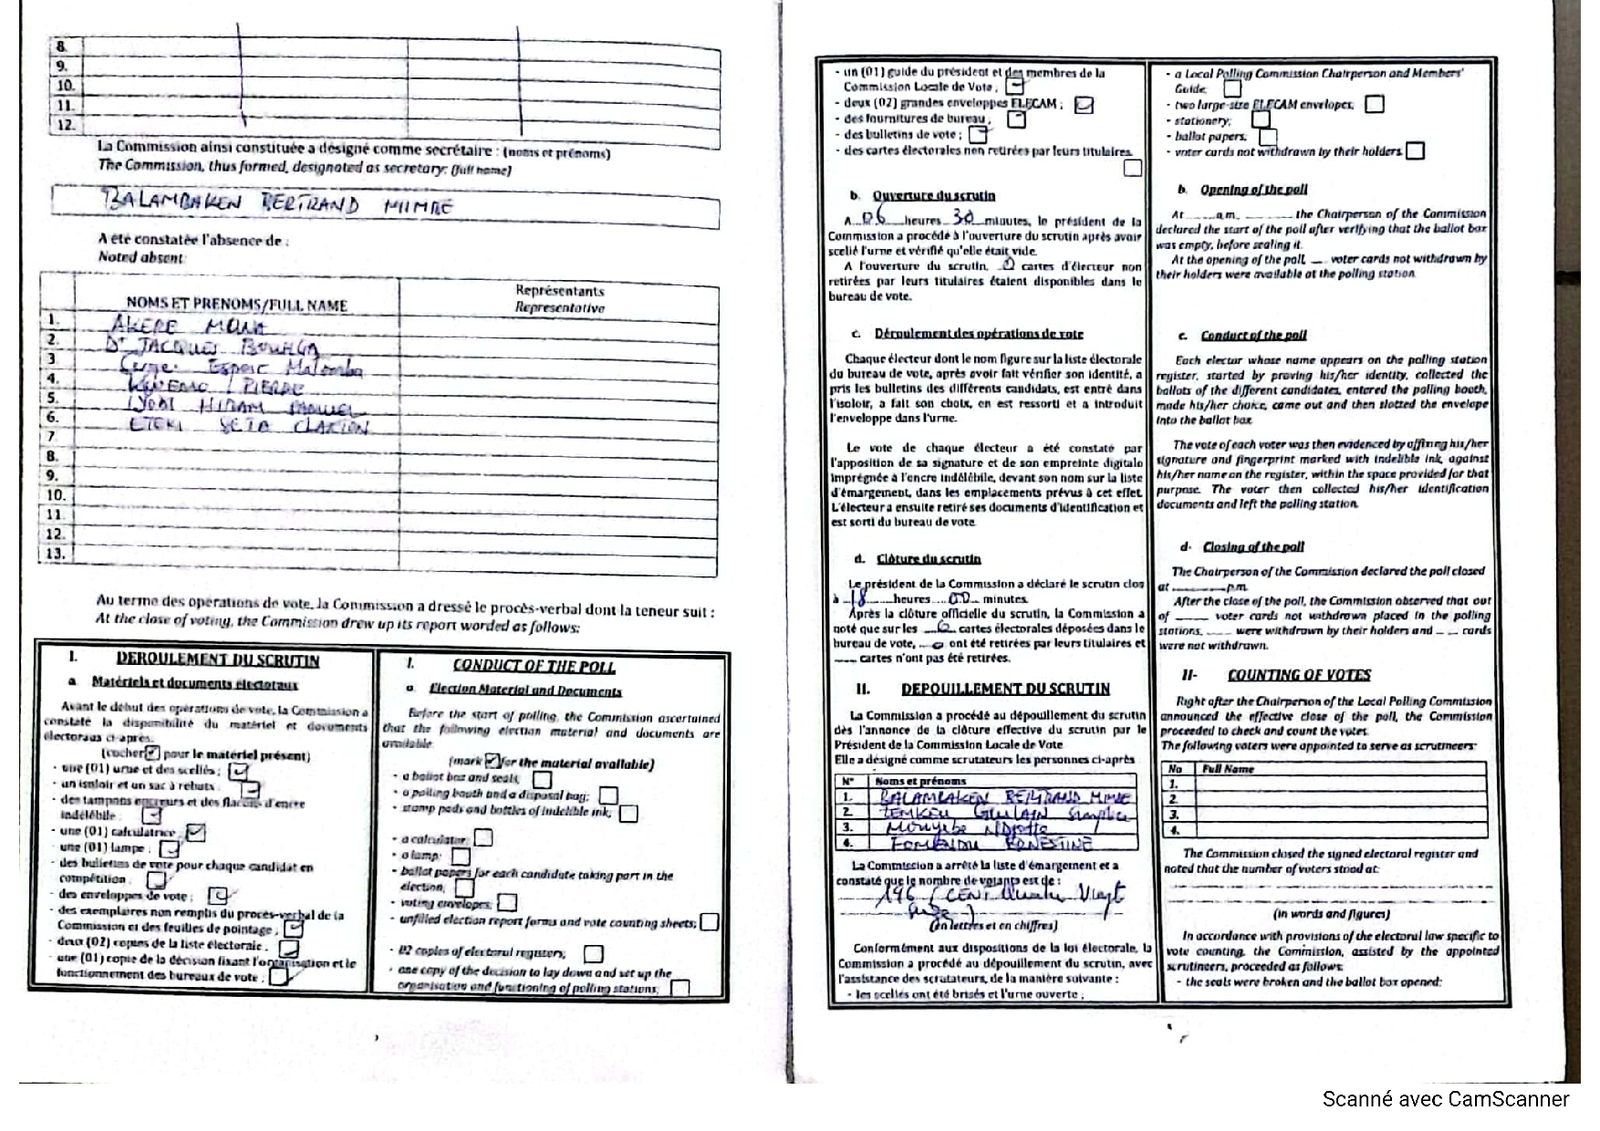 8.
9.
10.
11.
12.
La Commission ainsi constituée a désigné comme secrétaire : (noms et prénoms)
The Commission, thus formed, designated as secretary: (full name)
BALAMBAKEN BERTRAND MIMBE
A été constatée l'absence de :
Noted absent:
NOMS ET PRENOMS/FULL NAME
Représentants
Representative
1. AKERE MUNA
2. Dr JACQUES BOUHGA
3. Serge Espoir Matomba
4. KWEMO PIERRE
5. IYODI HIRAM SAMUEL
6. ETEKI SETA CLAXION
7.
8.
9.
10.
11.
12.
13.
Au terme des opérations de vote, la Commission a dressé le procès-verbal dont la teneur suit :
At the close of voting, the Commission drew up its report worded as follows:
I. DEROULEMENT DU SCRUTIN
a Matériels et documents électoraux
Avant le début des opérations de vote, la Commission a
constaté la disponibilité du matériel et documents
électoraux ci-après.
(cocher pour le matériel présent)
- une (01) urne et des scellés ;
- un isoloir et un sac à rebuts ;
- des tampons encreurs et des flacons d'encre
indélébile :
- une (01) calculatrice ;
- une (01) lampe ;
- des bulletins de vote pour chaque candidat en
compétition ;
- des enveloppes de vote ;
- des exemplaires non remplis du procès-verbal de la
Commission et des feuilles de pointage ;
- deux (02) copies de la liste électorale .
- une (01) copie de la décision fixant l'organisation et le
fonctionnement des bureaux de vote ;
I. CONDUCT OF THE POLL
a. Election Material and Documents
Before the start of polling, the Commission ascertained
that the following election material and documents are
available
(mark for the material available)
- a ballot box and seals;
- a polling booth and a disposal bag;
- stamp pads and bottles of indelible ink;
- a calculator;
- a lamp;
- ballot papers for each candidate taking part in the
election;
- voting envelopes;
- unfilled election report forms and vote counting sheets;
- 02 copies of electoral registers;
- one copy of the decision to lay down and set up the
organisation and functioning of polling stations;
- un (01) guide du président et des membres de la
Commission Locale de Vote ;
- deux (02) grandes enveloppes ELECAM ;
- des fournitures de bureau ;
- des bulletins de vote ;
- des cartes électorales non retirées par leurs titulaires.
b. Ouverture du scrutin
A 06 heures 30 minutes, le président de la
Commission a procédé à l'ouverture du scrutin après avoir
scellé l'urne et vérifié qu'elle était vide.
A l'ouverture du scrutin, 0 cartes d'électeur non
retirées par leurs titulaires étaient disponibles dans le
bureau de vote.
c. Déroulement des opérations de vote
Chaque électeur dont le nom figure sur la liste électorale
du bureau de vote, après avoir fait vérifier son identité, a
pris les bulletins des différents candidats, est entré dans
l'isoloir, a fait son choix, en est ressorti et a introduit
l'enveloppe dans l'urne.
Le vote de chaque électeur a été constaté par
l'apposition de sa signature et de son empreinte digitale
imprégnée à l'encre indélébile, devant son nom sur la liste
d'émargement, dans les emplacements prévus à cet effet.
L'électeur a ensuite retiré ses documents d'identification et
est sorti du bureau de vote.
d. Clôture du scrutin
Le président de la Commission a déclaré le scrutin clos
à 18 heures 00 minutes.
Après la clôture officielle du scrutin, la Commission a
noté que sur les 0 cartes électorales déposées dans le
bureau de vote, 0 ont été retirées par leurs titulaires et
cartes n'ont pas été retirées.
II. DEPOUILLEMENT DU SCRUTIN
La Commission a procédé au dépouillement du scrutin
dès l'annonce de la clôture effective du scrutin par le
Président de la Commission Locale de Vote
Elle a désigné comme scrutateurs les personnes ci-après
N° Noms et prénoms
1. BALAMBAKEN BERTRAND MIMBE
2. TEMKEU GHISLAIN Simplice
3. Mouyebe Ndjotto
4. FOMENDU ERNESTINE
La Commission a arrêté la liste d'émargement et a
constaté que le nombre de votants est de :
196 (CENT Quatre Vingt
Seize)
(en lettres et en chiffres)
Conformément aux dispositions de la loi électorale, la
Commission a procédé au dépouillement du scrutin, avec
l'assistance des scrutateurs, de la manière suivante :
- les scellés ont été brisés et l'urne ouverte ;
- a Local Polling Commission Chairperson and Members'
Guide;
- two large-size ELECAM envelopes;
- stationery;
- ballot papers;
- voter cards not withdrawn by their holders
b. Opening of the poll
At a.m, the Chairperson of the Commission
declared the start of the poll after verifying that the ballot box
was empty, before sealing it.
At the opening of the poll, voter cards not withdrawn by
their holders were available at the polling station.
c. Conduct of the poll
Each elector whose name appears on the polling station
register, started by proving his/her identity, collected the
ballots of the different candidates, entered the polling booth,
made his/her choice, came out and then slotted the envelope
into the ballot box.
The vote of each voter was then evidenced by affixing his/her
signature and fingerprint marked with indelible ink, against
his/her name on the register, within the space provided for that
purpose. The voter then collected his/her identification
documents and left the polling station.
d- Closing of the poll
The Chairperson of the Commission declared the poll closed
at p.m.
After the close of the poll, the Commission observed that out
of voter cards not withdrawn placed in the polling
stations, were withdrawn by their holders and cards
were not withdrawn.
II- COUNTING OF VOTES
Right after the Chairperson of the Local Polling Commission
announced the effective close of the poll, the Commission
proceeded to check and count the votes.
The following voters were appointed to serve as scrutineers:
No Full Name
1.
2.
3.
4.
The Commission closed the signed electoral register and
noted that the number of voters stood at:
(in words and figures)
In accordance with provisions of the electoral law specific to
vote counting, the Commission, assisted by the appointed
scrutineers, proceeded as follows:
- the seals were broken and the ballot box opened;
Scanné avec CamScanner